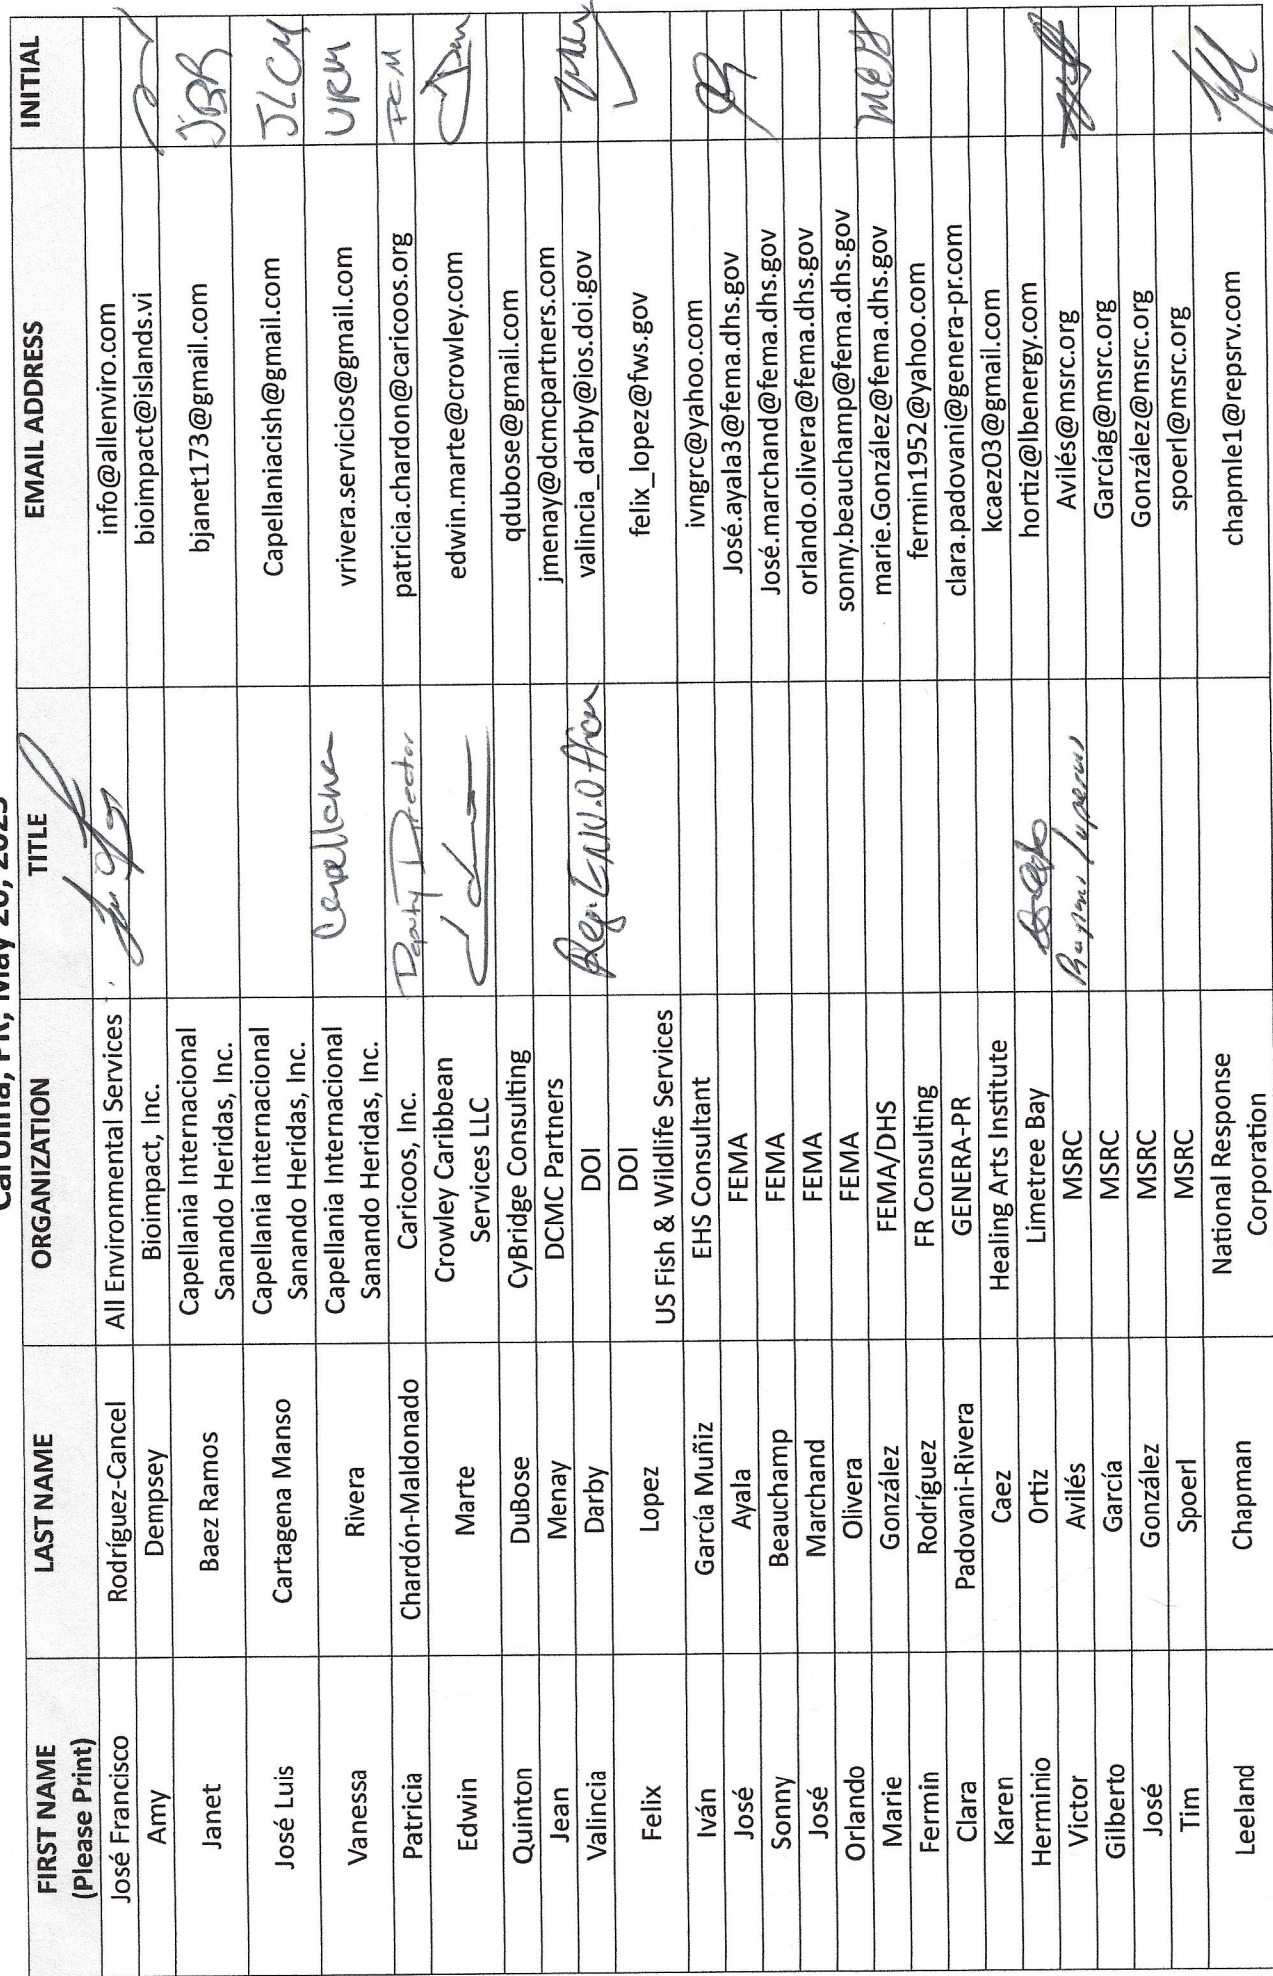 Carolina, PR, May 20, 2025
FIRST NAME (Please Print) LAST NAME ORGANIZATION TITLE EMAIL ADDRESS INITIAL
José Francisco Rodríguez-Cancel All Environmental Services info@allenviro.com
Amy Dempsey Bioimpact, Inc. bioimpact@islands.vi
Janet Baez Ramos Capellania Internacional Sanando Heridas, Inc. bjanet173@gmail.com JBR
José Luis Cartagena Manso Capellania Internacional Sanando Heridas, Inc. Capellaniacish@gmail.com JLCM
Vanessa Rivera Capellania Internacional Sanando Heridas, Inc. vrivera.servicios@gmail.com VRM
Patricia Chardón-Maldonado Caricoos, Inc. Deputy Director patricia.chardon@caricoos.org PCM
Edwin Marte Crowley Caribbean Services LLC edwin.marte@crowley.com
Quinton DuBose CyBridge Consulting qdubose@gmail.com
Jean Menay DCMC Partners jmenay@dcmcpartners.com
Valincia Darby DOI Reg. ENV. Officer valincia_darby@ios.doi.gov
Felix Lopez DOI US Fish & Wildlife Services felix_lopez@fws.gov
Iván García Muñiz EHS Consultant ivngrc@yahoo.com
José Ayala FEMA José.ayala3@fema.dhs.gov
Sonny Beauchamp FEMA José.marchand@fema.dhs.gov
José Marchand FEMA orlando.olivera@fema.dhs.gov
Orlando Olivera FEMA sonny.beauchamp@fema.dhs.gov
Marie González FEMA/DHS marie.González@fema.dhs.gov
Fermin Rodríguez FR Consulting fermin1952@yahoo.com
Clara Padovani-Rivera GENERA-PR clara.padovani@genera-pr.com
Karen Caez Healing Arts Institute kcaez03@gmail.com
Herminio Ortiz Limetree Bay hortiz@lbenergy.com
Victor Avilés MSRC Avilés@msrc.org
Gilberto García MSRC Garcíag@msrc.org
José González MSRC González@msrc.org
Tim Spoerl MSRC spoerl@msrc.org
Leeland Chapman National Response Corporation chapmle1@repsrv.com